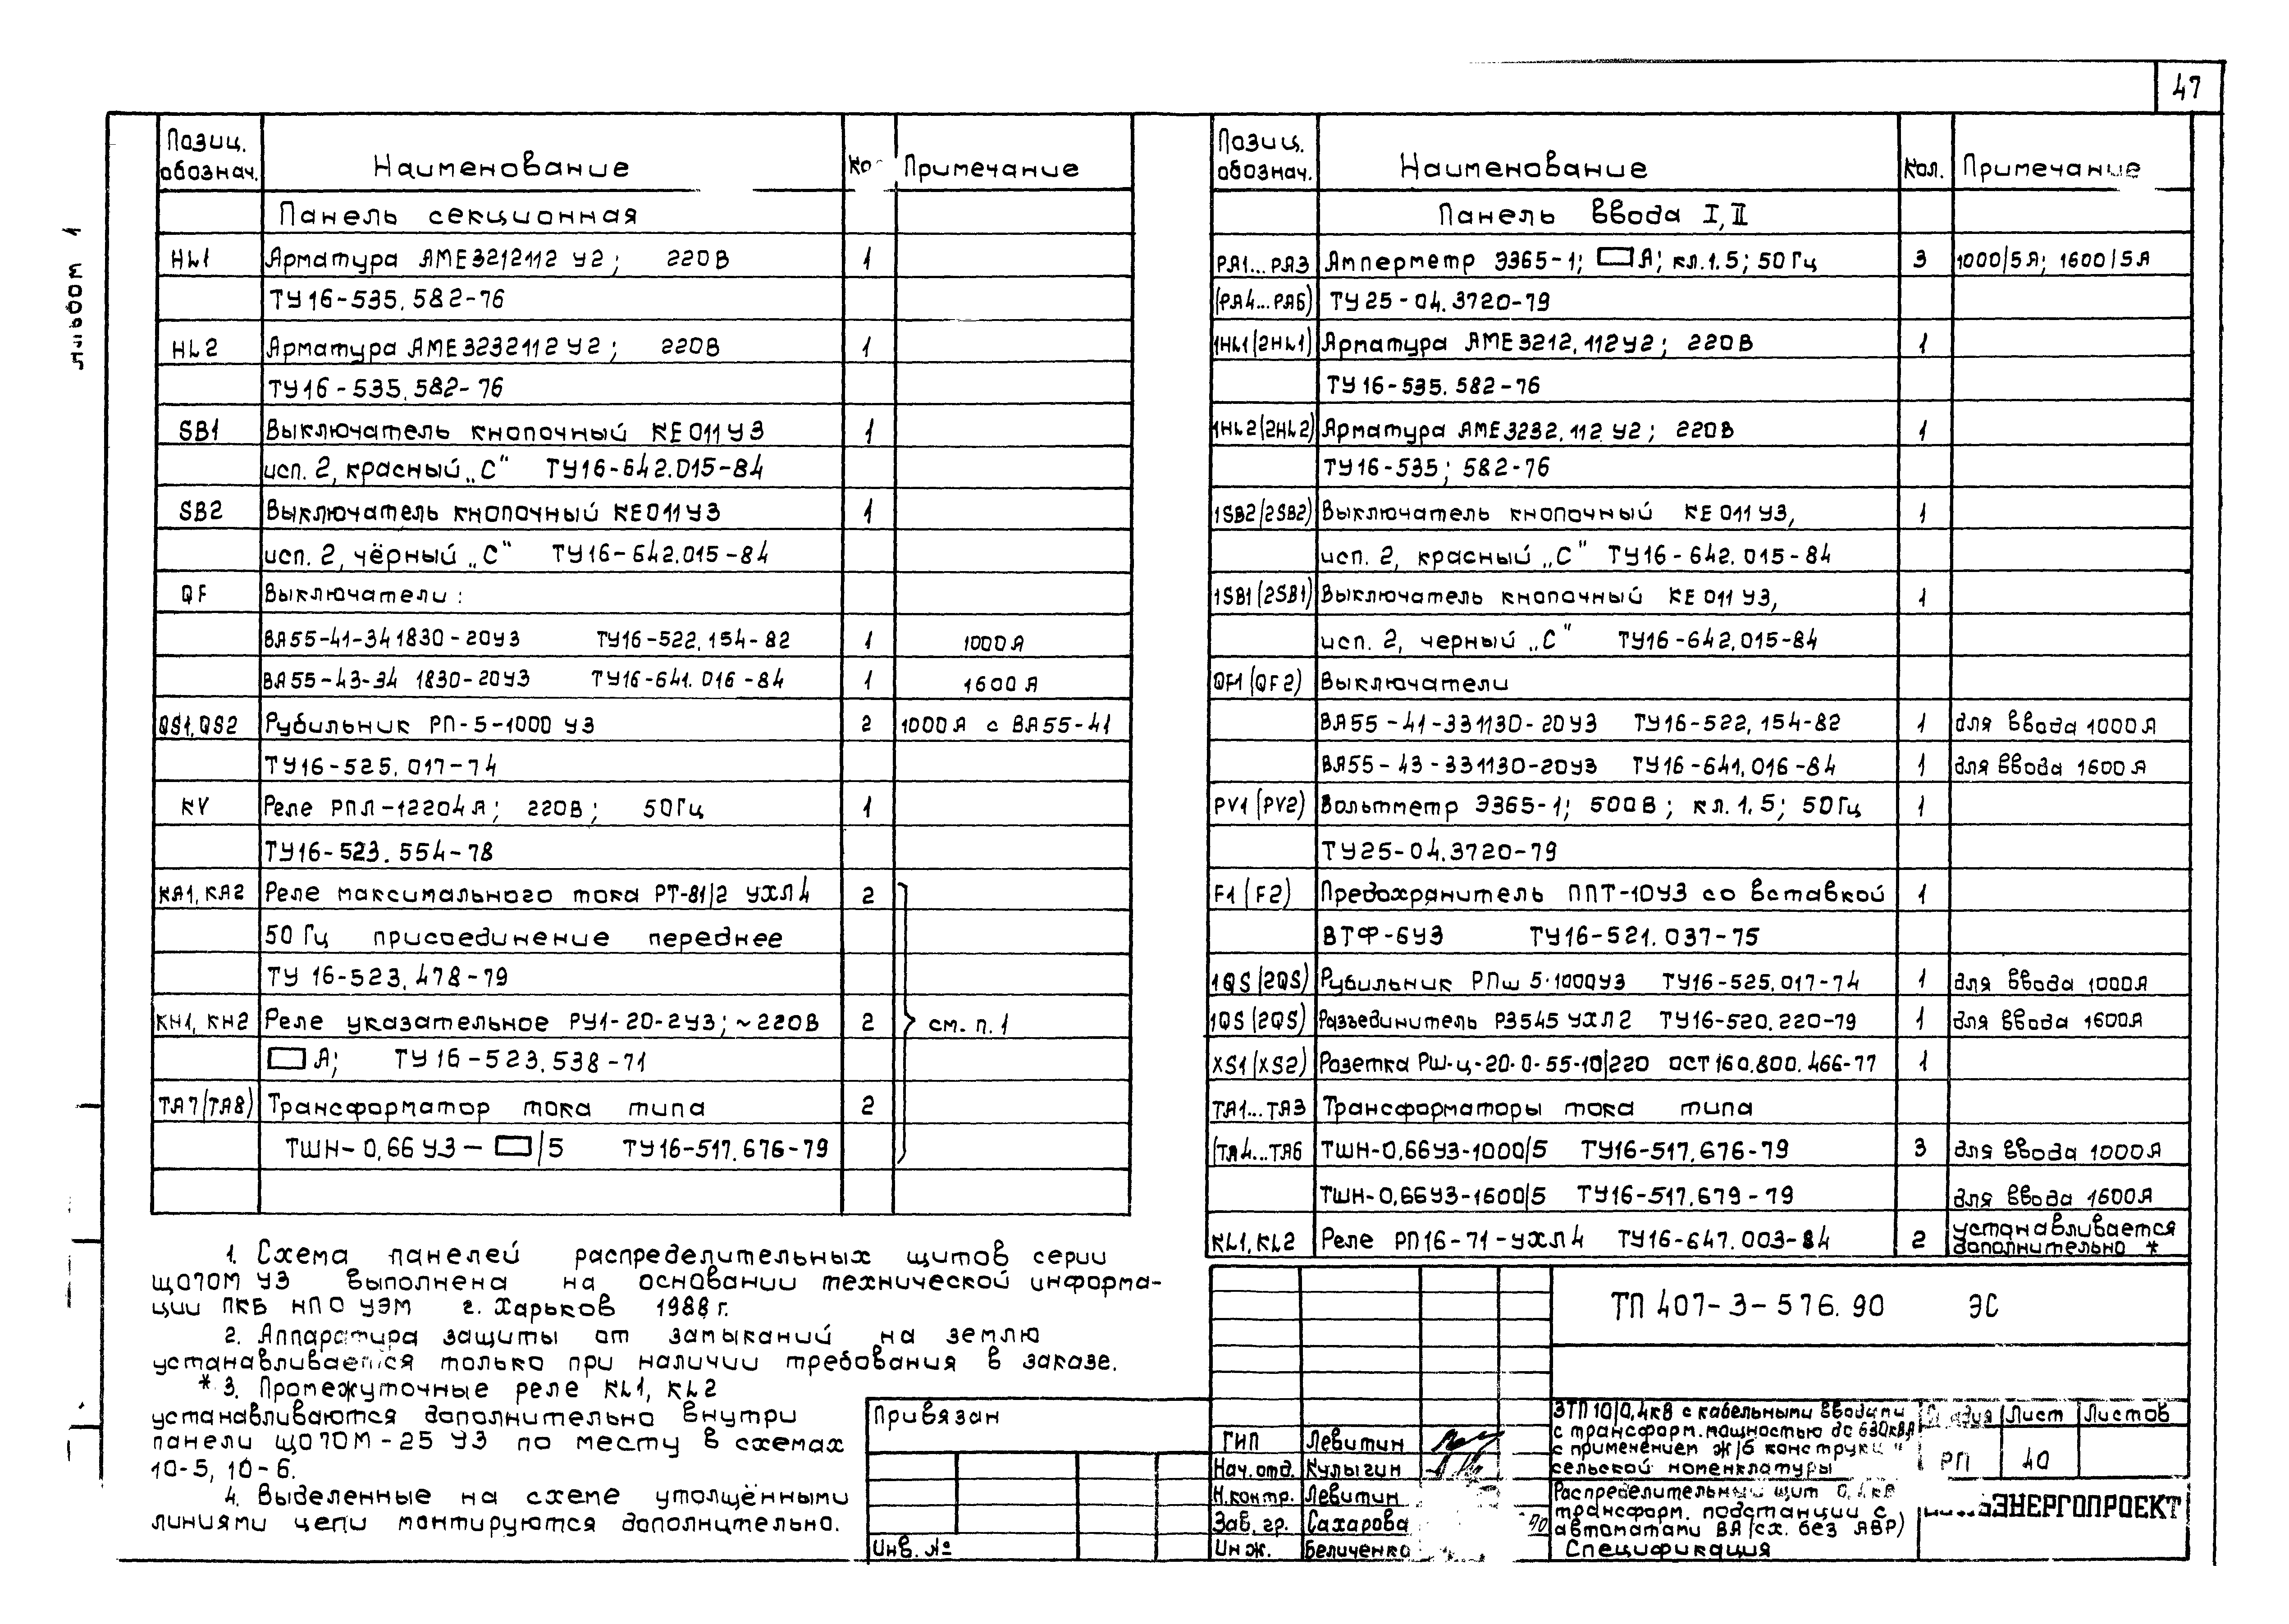 47
Альбом 1
Позиц. обознач. Наименование Примечание
Панель секционная
HL1 Арматура АМЕ3212112 У2; 220В 1
ТУ16-535.582-76
HL2 Арматура АМЕ3232112 У2; 220В 1
ТУ16-535.582-76
SB1 Выключатель кнопочный КЕ011У3 1
исп. 2, красный „С" ТУ16-642.015-84
SB2 Выключатель кнопочный КЕ011У3 1
исп. 2, чёрный „С" ТУ16-642.015-84
QF Выключатели:
ВА55-41-341830-20У3 ТУ16-522.154-82 1 1000А
ВА55-43-34 1830-20У3 ТУ16-641.016-84 1 1600А
QS1, QS2 Рубильник РП-5-1000 У3 2 1000А с ВА55-41
ТУ16-525.017-74
KV Реле РПЛ-12204А; 220В; 50Гц 1
ТУ16-523.554-78
КА1, КА2 Реле максимального тока РТ-81/2 УХЛ4 2
50 Гц присоединение переднее
ТУ 16-523.478-79
КН1, КН2 Реле указательное РУ1-20-2У3; ~220В 2 см. п. 1
▭ А; ТУ16-523.538-71
ТА7(ТА8) Трансформатор тока типа 2
ТШН-0,66 У3-▭/5 ТУ16-517.676-79
1. Схема панелей распределительных щитов серии
ЩО70М У3 выполнена на основании технической информа-
ции ПКБ НПО УЭМ г. Харьков 1988г.
2. Аппаратура защиты от замыканий на землю
устанавливается только при наличии требования в заказе.
* 3. Промежуточные реле KL1, KL2
устанавливаются дополнительно внутри
панели ЩО70М-25 У3 по месту в схемах
10-5, 10-6.
4. Выделенные на схеме утолщёнными
линиями цепи монтируются дополнительно.
Позиц. обознач. Наименование Кол. Примечание
Панель ввода I, II
РА1...РА3 Амперметр Э365-1; ▭А; кл.1.5; 50Гц 3 1000/5А; 1600/5А
(РА4...РА6) ТУ25-04.3720-79
1HL1(2HL1) Арматура АМЕ3212.112У2; 220В 1
ТУ16-535.582-76
1HL2(2HL2) Арматура АМЕ3232.112 У2; 220В 1
ТУ16-535; 582-76
1SB2(2SB2) Выключатель кнопочный КЕ011У3, 1
исп. 2, красный „С" ТУ16-642.015-84
1SB1(2SB1) Выключатель кнопочный КЕ011У3, 1
исп. 2, черный „С" ТУ16-642.015-84
QF1 (QF2) Выключатели
ВА55-41-331130-20У3 ТУ16-522.154-82 1 для ввода 1000А
ВА55-43-331130-20У3 ТУ16-641.016-84 1 для ввода 1600А
PV1 (PV2) Вольтметр Э365-1; 500В; кл.1.5; 50Гц 1
ТУ25-04.3720-79
F1 (F2) Предохранитель ППТ-10У3 со вставкой 1
ВТФ-6У3 ТУ16-521.037-75
1QS (2QS) Рубильник РПш 5·1000У3 ТУ16-525.017-74 1 для ввода 1000А
1QS (2QS) Разъединитель Р3545 УХЛ2 ТУ16-520.220-79 1 для ввода 1600А
XS1(XS2) Розетка РШ-ц-20-0-55-10/220 ОСТ160.800.466-77 1
ТА1...ТА3 Трансформаторы тока типа
(ТА4...ТА6 ТШН-0,66У3-1000/5 ТУ16-517.676-79 3 для ввода 1000А
ТШН-0,66У3-1600/5 ТУ16-517.679-79 для ввода 1600А
KL1, KL2 Реле РП16-71-УХЛ4 ТУ16-647.003-84 2 устанавливается дополнительно *
ТП 407-3-576.90 ЭС
Привязан
Инв. №
ГИП Левитин
Нач.отд. Кулыгин
Н.контр. Левитин
Зав. гр. Сахарова 90
Инж. Беличенко
ЗТП 10/0,4кВ с кабельными вводами
с трансформ. мощностью до 630кВА
с применением ж/б конструкц
сельской номенклатуры
Лист Листов
РП 40
Распределительный щит 0,4кВ
трансформ. подстанции с
автоматами ВА (сх. без АВР)
Спецификация
ЭНЕРГОПРОЕКТ